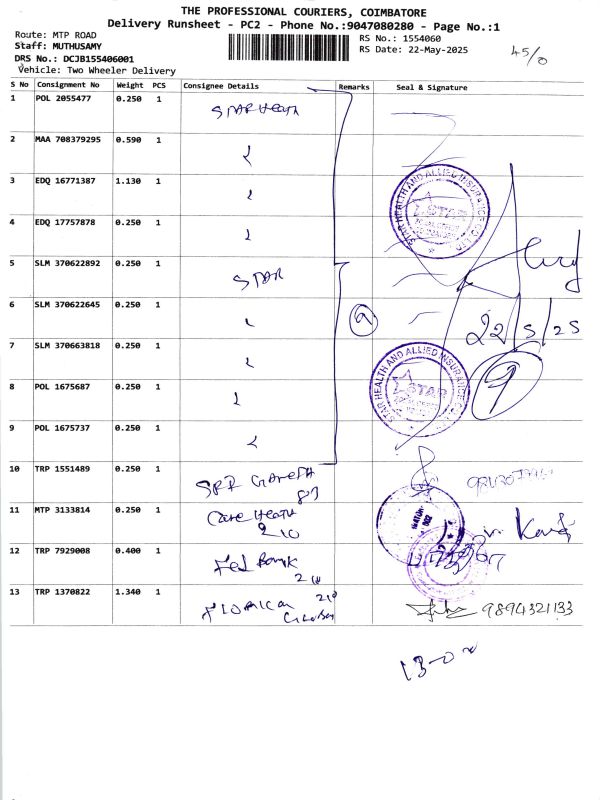 THE PROFESSIONAL COURIERS, COIMBATORE
Delivery Runsheet - PC2 - Phone No.:9047080280 - Page No.:1
Route: MTP ROAD
Staff: MUTHUSAMY
DRS No.: DCJB155406001
Vehicle: Two Wheeler Delivery
RS No.: 1554060
RS Date: 22-May-2025
45/0
S No Consignment No Weight PCS Consignee Details Remarks Seal & Signature
1 POL 2055477 0.250 1 STAR Heath
2 MAA 708379295 0.590 1
3 EDQ 16771387 1.130 1
4 EDQ 17757878 0.250 1
5 SLM 370622892 0.250 1 STAR
6 SLM 370622645 0.250 1 9
22/5/25
7 SLM 370663818 0.250 1
9
8 POL 1675687 0.250 1
9 POL 1675737 0.250 1
10 TRP 1551489 0.250 1 SRI GANESH
11 MTP 3133814 0.250 1 Care Heath
210
12 TRP 7929008 0.400 1 Fed Bank
210
13 TRP 1370822 1.340 1 210
9894321133
STAR HEALTH AND ALLIED INSURANCE CO. LTD.
STAR
STAR HEALTH AND ALLIED INSURANCE CO. LTD.
STAR
13-0